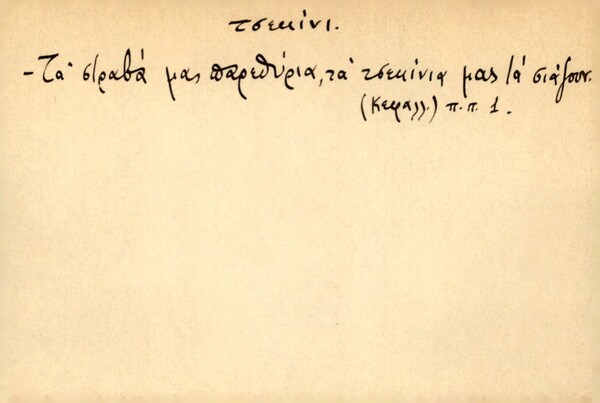 τσεκίνι.
- Τα στραβά μας παρεθύρια, τα τσεκίνια μας τα σιάζουν.
(Κεφαλλ.) π.π. 1.